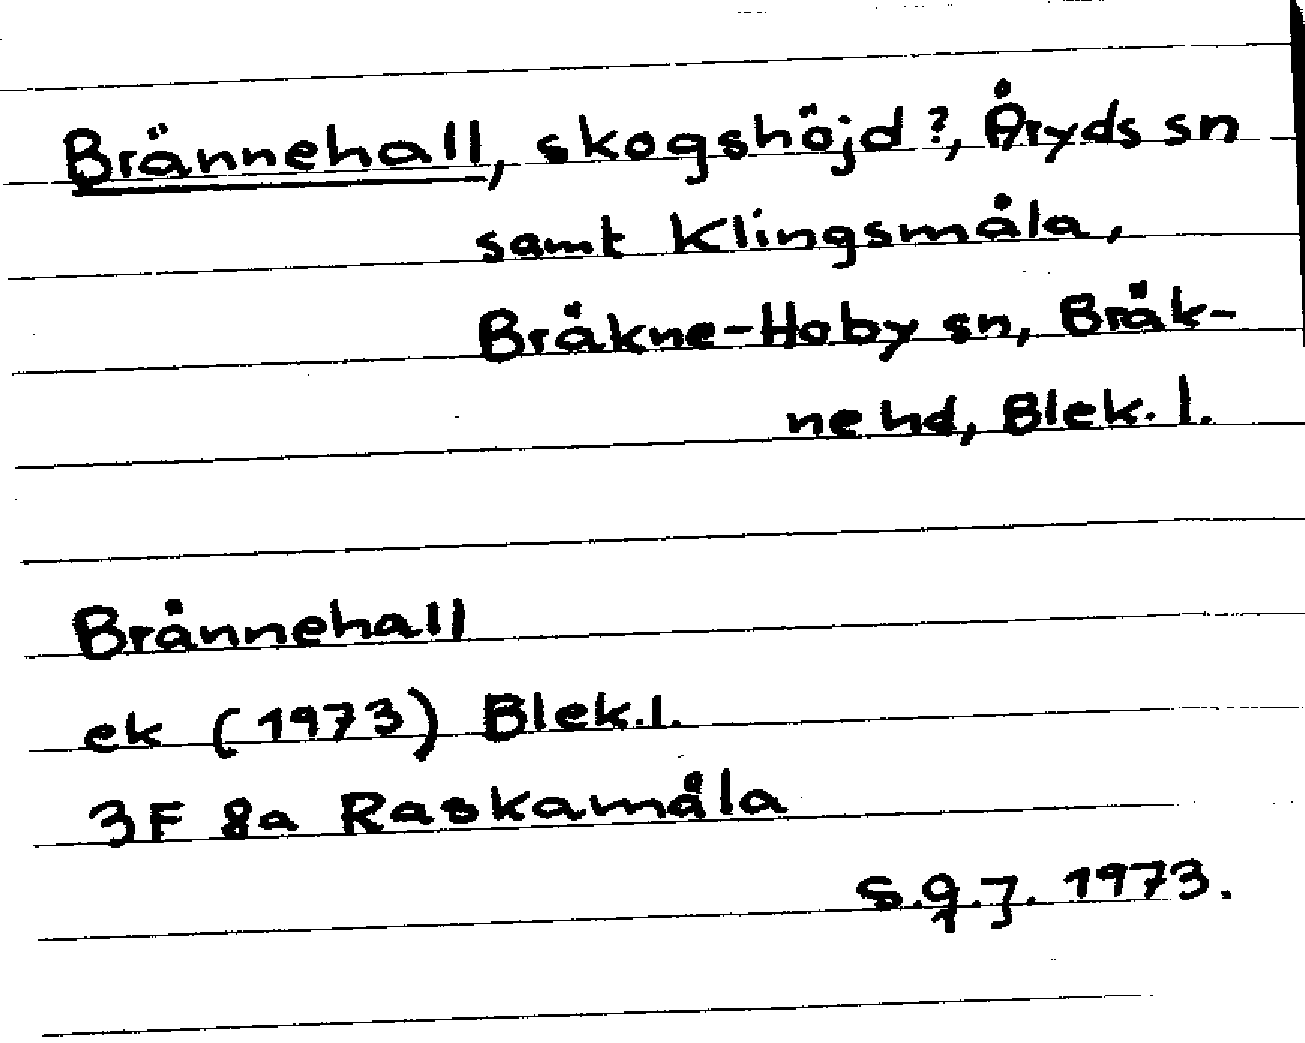 Brännehall, skogshöjd?, Åryds sn
samt Klingsmåla,
Bräkne-Hoby sn, Bräk-
ne hd, Blek. l.
Brännehall
ek (1973) Blek. l.
3F 8a Raskamåla
S.G.J. 1973.